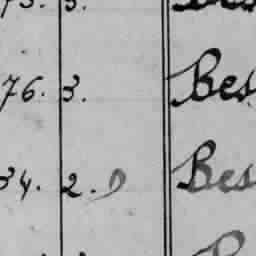 76. 3. Bes
34. 2.
Bes